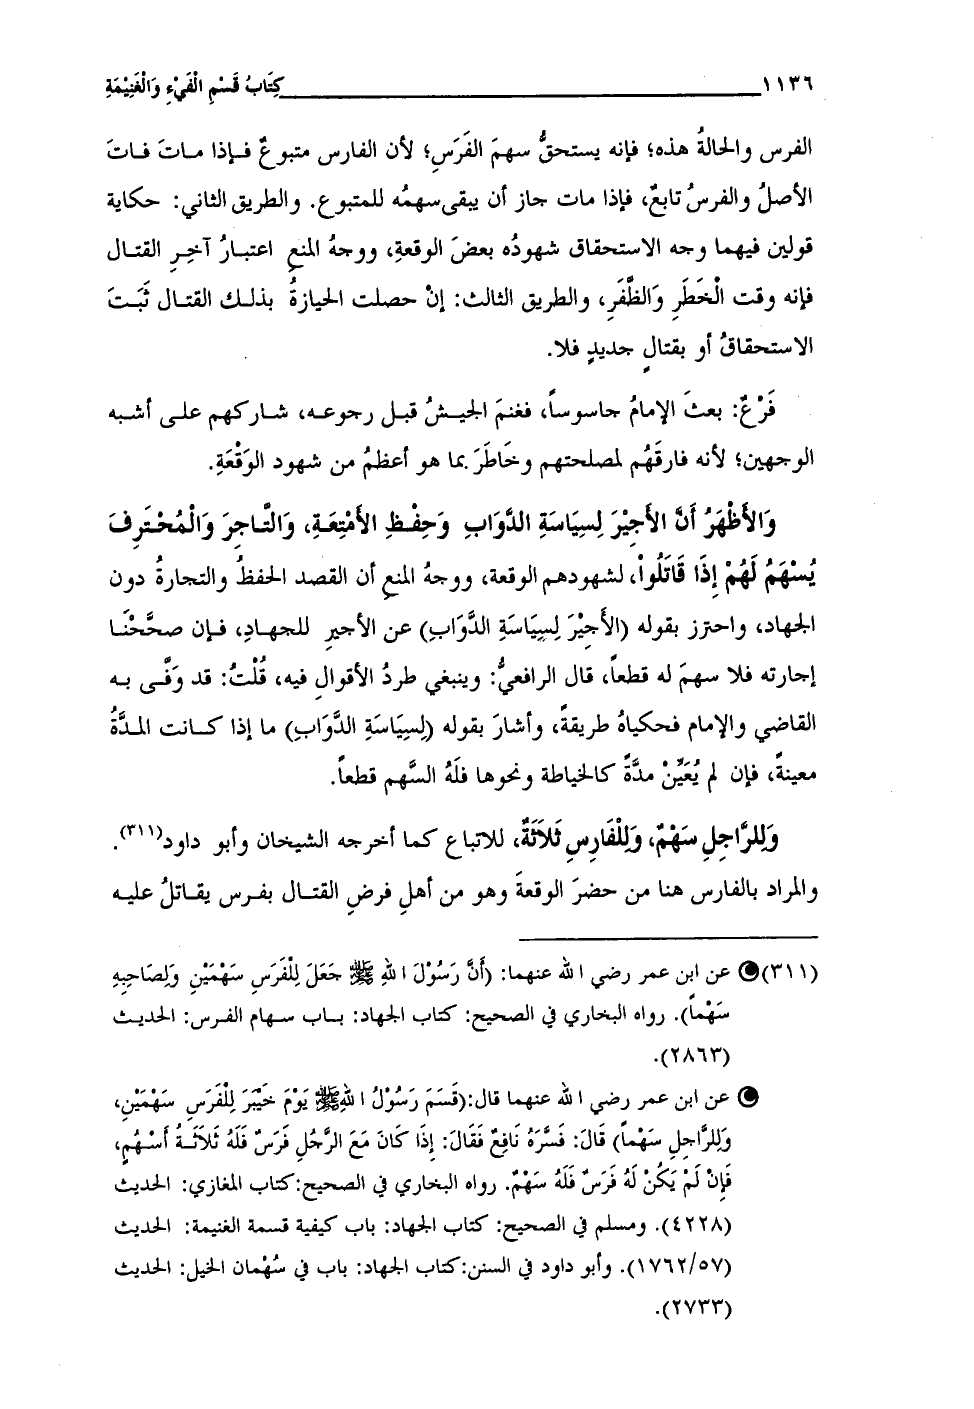 ١١٣٦ كِتَابُ قَسْمِ الْفَيْءِ وَالْغَنِيْمَةِ
الفرس والحالةُ هذه؛ فإنه يستحقُّ سهمَ الفَرَسِ؛ لأن الفارس متبوعٌ فإذا ماتَ فاتَ
الأصلُ والفرسُ تابعٌ، فإذا مات جاز أن يبقى سهمُه للمتبوع. والطريق الثاني: حكاية
قولين فيهما وجه الاستحقاق شهودُه بعضَ الوقعةِ، ووجهُ المنعِ اعتبارُ آخِرِ القتال
فإنه وقت الْخَطَرِ وَالظَّفَرِ، والطريق الثالث: إنْ حصلت الحيازةُ بذلك القتال ثَبَتَ
الاستحقاقُ أو بقتالٍ جديدٍ فلا.
فَرْعٌ: بعثَ الإمامُ جاسوساً، فغنمَ الجيشُ قبل رجوعه، شاركهم على أشبه
الوجهين؛ لأنه فارقَهُم لمصلحتهم وخَاطَرَ بما هو أعظمُ من شهود الوَقْعَةِ.
وَالأَظْهَرُ أَنَّ الأَجِيْرَ لِسِيَاسَةِ الدَّوَابِ وَحِفْظِ الأَمْتِعَةِ، وَالتَّاجِرَ وَالْمُحْتَرِفَ
يُسْهَمُ لَهُمْ إِذَا قَاتَلُواْ، لشهودهم الوقعة، ووجهُ المنعِ أن القصد الحفظُ والتجارةُ دون
الجهاد، واحترز بقوله (الأَجِيْرَ لِسِيَاسَةِ الدَّوَابِ) عن الأجيرِ للجهادِ، فإن صحَّحْنَا
إجارته فلا سهمَ له قطعاً، قال الرافعيُّ: وينبغي طردُ الأقوالِ فيه، قُلْتُ: قد وَفَّى به
القاضي والإمام فحكياهُ طريقةً، وأشارَ بقوله (لِسِيَاسَةِ الدَّوَابِ) ما إذا كانت المدَّةُ
معينةً، فإن لم يُعَيِّنْ مدَّةً كالخياطة ونحوها فلَهُ السَّهم قطعاً.
وَلِلرَّاجِلِ سَهْمٌ، وَلِلْفَارِسِ ثَلاَثَةٌ، للاتباع كما أخرجه الشيخان وأبو داود(٣١١).
والمراد بالفارس هنا من حضرَ الوقعةَ وهو من أهلِ فرضِ القتال بفرس يقاتلُ عليه
(٣١١) عن ابن عمر رضي الله عنهما: (أَنَّ رَسُوْلَ اللهِ ﷺ جَعَلَ لِلْفَرَسِ سَهْمَيْنِ وَلِصَاحِبِهِ
سَهْماً). رواه البخاري في الصحيح: كتاب الجهاد: باب سهام الفرس: الحديث
(٢٨٦٣).
عن ابن عمر رضي الله عنهما قال:(قَسَمَ رَسُوْلُ اللهِ ﷺ يَوْمَ خَيْبَرَ لِلْفَرَسِ سَهْمَيْنِ،
وَلِلرَّاجِلِ سَهْماً) قَالَ: فَسَّرَهُ نَافِعٌ فَقَالَ: إِذَا كَانَ مَعَ الرَّجُلِ فَرَسٌ فَلَهُ ثَلاَثَةُ أَسْهُمٍ،
فَإِنْ لَمْ يَكُنْ لَهُ فَرَسٌ فَلَهُ سَهْمٌ. رواه البخاري في الصحيح:كتاب المغازي: الحديث
(٤٢٢٨). ومسلم في الصحيح: كتاب الجهاد: باب كيفية قسمة الغنيمة: الحديث
(١٧٦٢/٥٧). وأبو داود في السنن:كتاب الجهاد: باب في سُهْمان الخيل: الحديث
(٢٧٣٣).